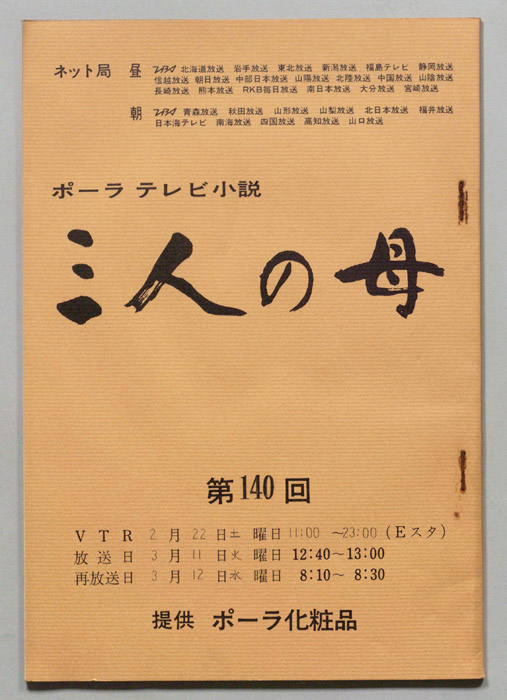 ネット局 昼 北海道放送 岩手放送 東北放送 新潟放送 福島テレビ 静岡放送
信越放送 朝日放送 中部日本放送 山陽放送 北陸放送 中国放送 山陰放送
長崎放送 熊本放送 RKB毎日放送 南日本放送 大分放送 宮崎放送
朝 青森放送 秋田放送 山形放送 山梨放送 北日本放送 福井放送
日本海テレビ 南海放送 四国放送 高知放送 山口放送
ポーラ テレビ小説
三人の母
第140回
VTR 2月22日土曜日 11:00~23:00(Eスタ)
放送日 3月11日火曜日 12:40~13:00
再放送日 3月12日水曜日 8:10~8:30
提供 ポーラ化粧品